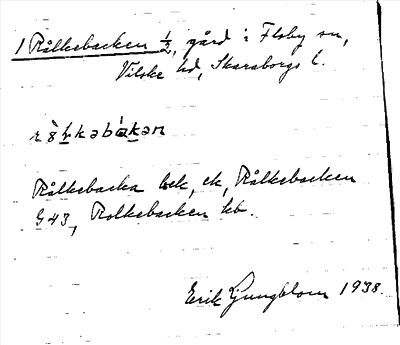 1 Rålkebacken 1/2, gård i Floby sn,
Vilske hd, Skaraborgs l.
Rålkebacka lck, ek, Rålkebacken
G43, Rolkebacken kb.
Erik Ljungblom 1938.